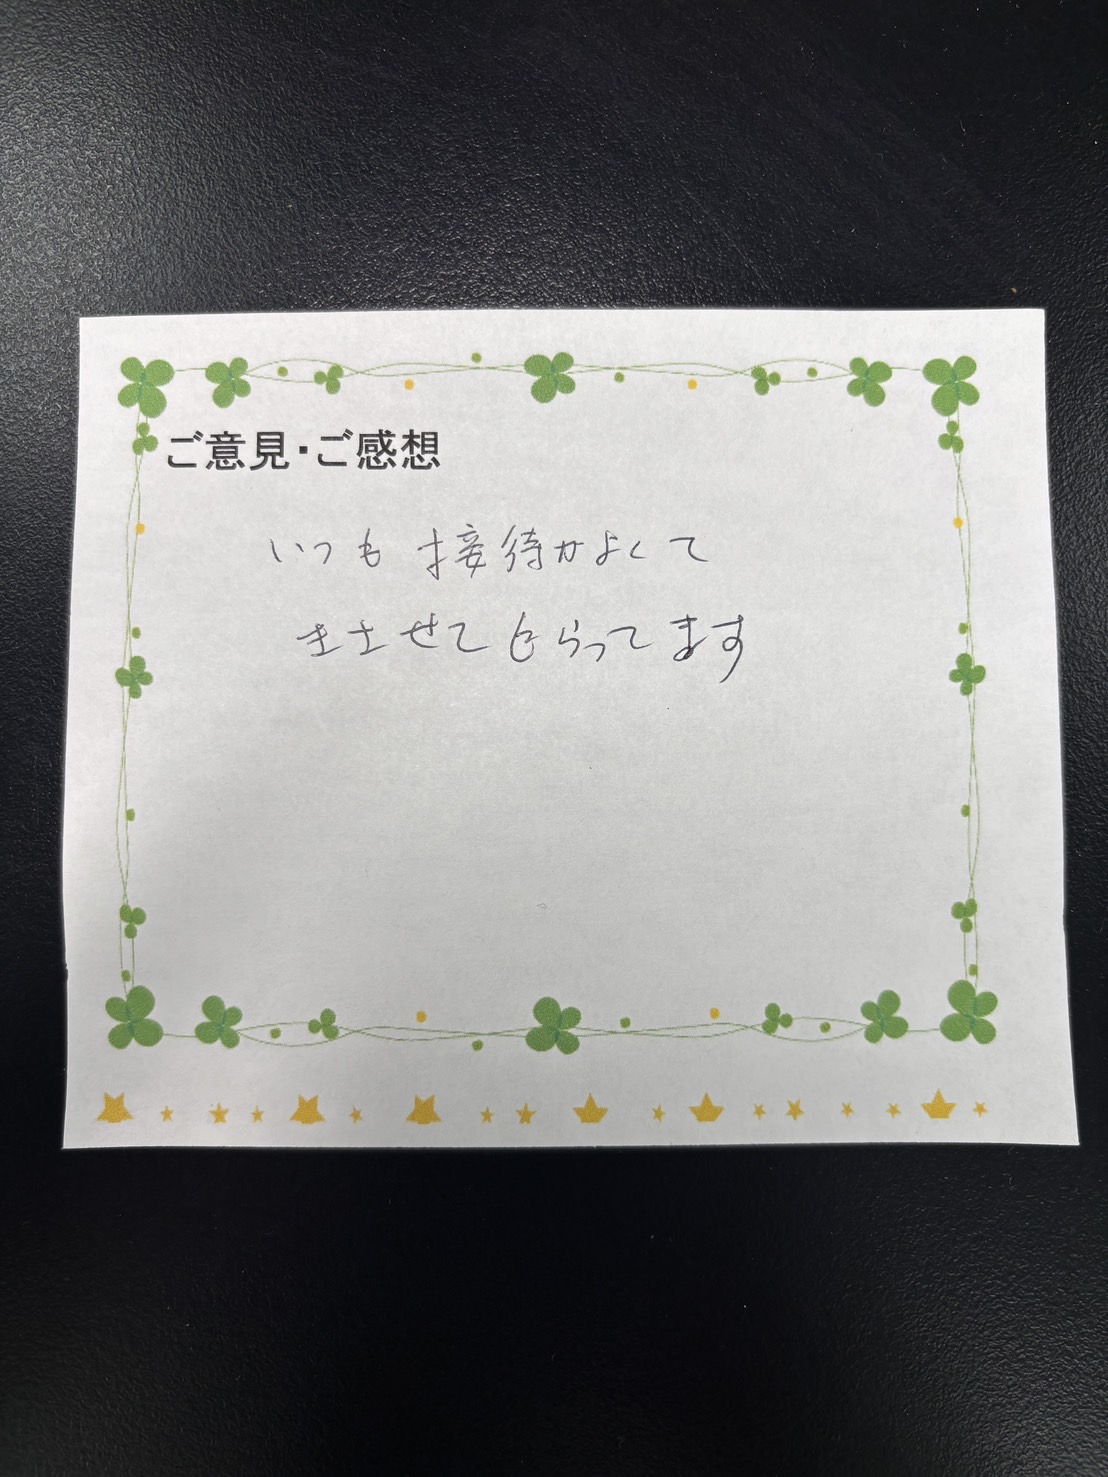 ご意見・ご感想
いつも接待がよくて
きさせてもらってます